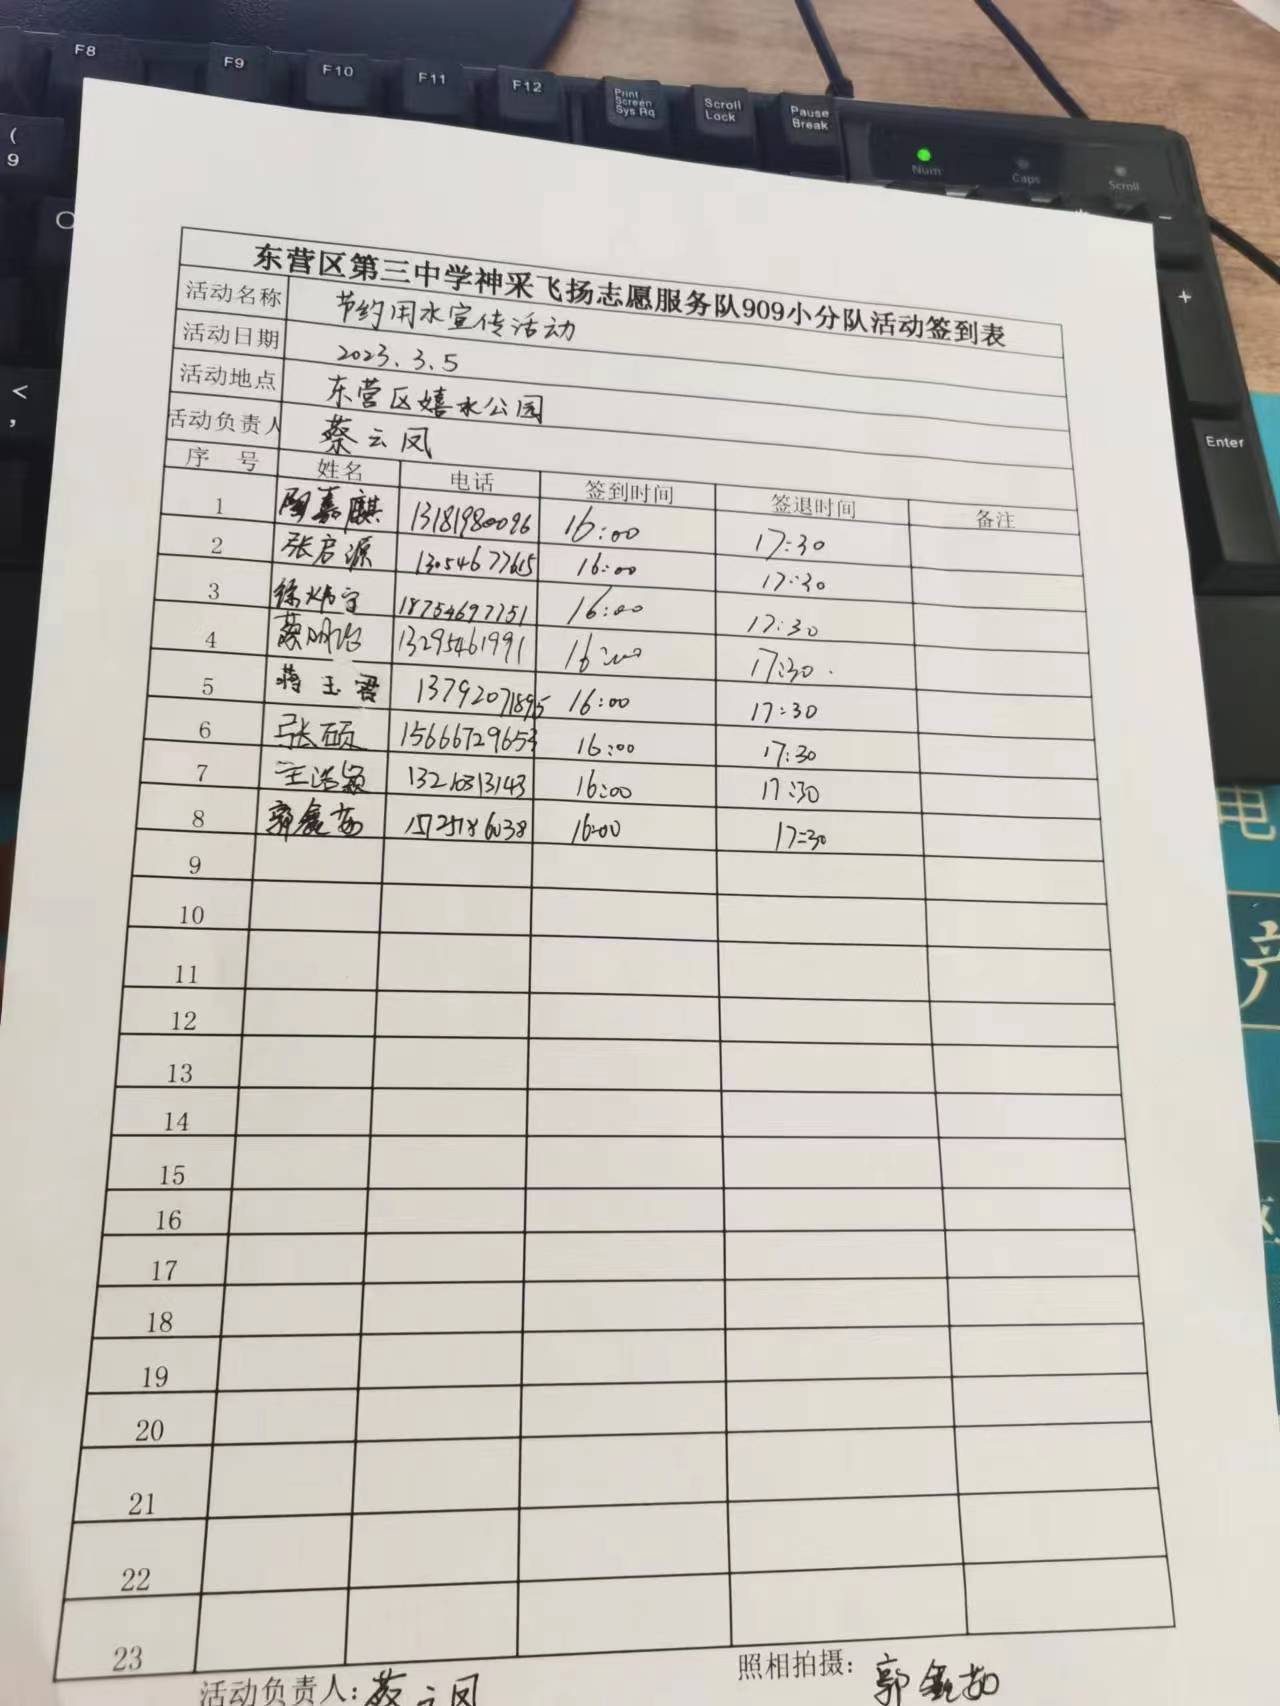 F8 F9 F10 F11 F12 Print Screen Sys Rq Scroll Lock Pause Break
( 9
Num Caps Scroll
O
+
<
,
Enter
东营区第三中学神采飞扬志愿服务队909小分队活动签到表
活动名称 节约用水宣传活动
活动日期 2023.3.5
活动地点 东营区嬉水公园
活动负责人 蔡云凤
序号 姓名 电话 签到时间 签退时间 备注
1 陶嘉麒 13181980096 16:00 17:30
2 张启源 13054677615 16:00 17:30
3 18754697751 16:00 17:30
4 13295461991 16:00 17:30.
5 蒋玉君 13792071895 16:00 17:30
6 张硕 15666729653 16:00 17:30
7 王浩颖 16:00 17:30
8 郭鑫茹 16:00 17:30
9
10
11
12
13
14
15
16
17
18
19
20
21
22
23
活动负责人:蔡云凤 照相拍摄:郭鑫茹
电
产